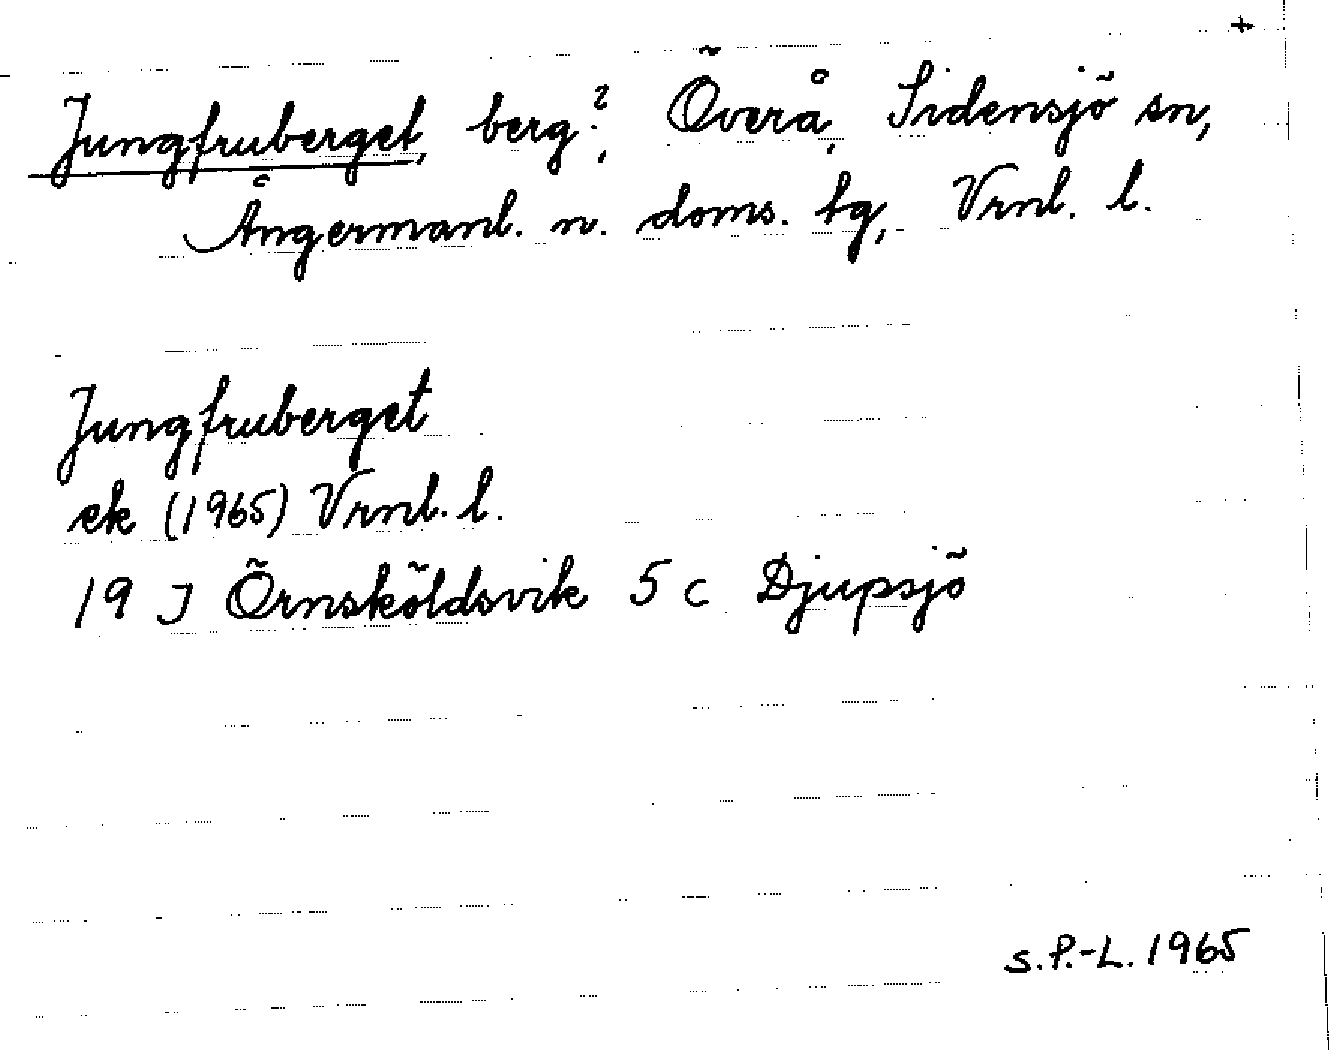 +
Jungfruberget, berg?, Överå, Sidensjö sn,
Ångermanl. n. doms. tg, Vrnl. l.
Jungfruberget
ek (1965) Vrnl. l.
19 J Örnsköldsvik 5 c Djupsjö
S.P.-L. 1965